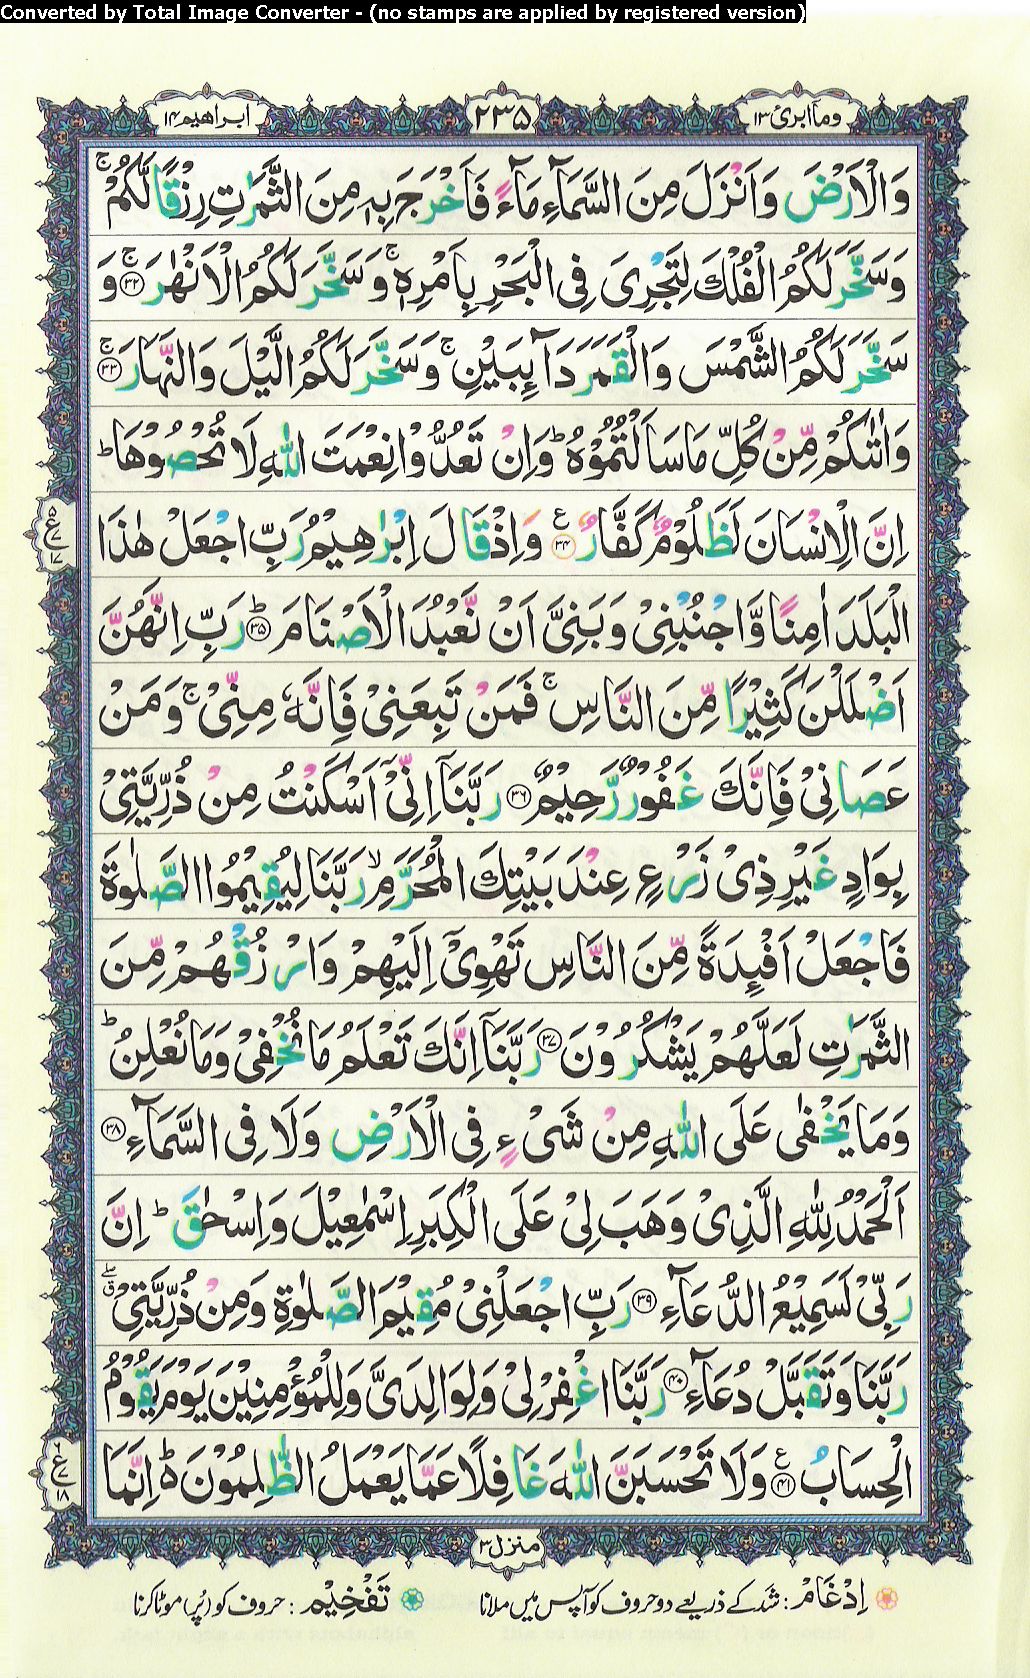 Converted by Total Image Converter - (no stamps are applied by registered version)
وماابرئ ١٣
٢٣٥
ابراهيم ١٤
وَالْاَرْضَ وَاَنْزَلَ مِنَ السَّمَآءِ مَآءً فَاَخْرَجَ بِهٖ مِنَ الثَّمَرٰتِ رِزْقًا لَّكُمْ ۚ
وَسَخَّرَ لَكُمُ الْفُلْكَ لِتَجْرِیَ فِی الْبَحْرِ بِاَمْرِهٖ ۚ وَسَخَّرَ لَكُمُ الْاَنْهٰرَ ۚ ﴿۳۲﴾ وَ
سَخَّرَ لَكُمُ الشَّمْسَ وَالْقَمَرَ دَآىِٕبَیْنِ ۚ وَسَخَّرَ لَكُمُ الَّیْلَ وَالنَّهَارَ ۚ ﴿۳۳﴾
وَاٰتٰىكُمْ مِّنْ كُلِّ مَا سَاَلْتُمُوْهُ ؕ وَاِنْ تَعُدُّوْا نِعْمَتَ اللّٰهِ لَا تُحْصُوْهَا ؕ
اِنَّ الْاِنْسَانَ لَظَلُوْمٌ كَفَّارٌ ﴿۳۴﴾ ع وَاِذْ قَالَ اِبْرٰهِیْمُ رَبِّ اجْعَلْ هٰذَا
الْبَلَدَ اٰمِنًا وَّاجْنُبْنِیْ وَبَنِیَّ اَنْ نَّعْبُدَ الْاَصْنَامَ ؕ ﴿۳۵﴾ رَبِّ اِنَّهُنَّ
اَضْلَلْنَ كَثِیْرًا مِّنَ النَّاسِ ۚ فَمَنْ تَبِعَنِیْ فَاِنَّهٗ مِنِّیْ ۚ وَمَنْ
عَصَانِیْ فَاِنَّكَ غَفُوْرٌ رَّحِیْمٌ ﴿۳۶﴾ رَبَّنَاۤ اِنِّیْۤ اَسْكَنْتُ مِنْ ذُرِّیَّتِیْ
بِوَادٍ غَیْرِ ذِیْ زَرْعٍ عِنْدَ بَیْتِكَ الْمُحَرَّمِ ۙ رَبَّنَا لِیُقِیْمُوا الصَّلٰوةَ
فَاجْعَلْ اَفْىِٕدَةً مِّنَ النَّاسِ تَهْوِیْۤ اِلَیْهِمْ وَارْزُقْهُمْ مِّنَ
الثَّمَرٰتِ لَعَلَّهُمْ یَشْكُرُوْنَ ﴿۳۷﴾ رَبَّنَاۤ اِنَّكَ تَعْلَمُ مَا نُخْفِیْ وَمَا نُعْلِنُ ؕ
وَمَا یَخْفٰی عَلَی اللّٰهِ مِنْ شَیْءٍ فِی الْاَرْضِ وَلَا فِی السَّمَآءِ ﴿۳۸﴾
اَلْحَمْدُ لِلّٰهِ الَّذِیْ وَهَبَ لِیْ عَلَی الْكِبَرِ اِسْمٰعِیْلَ وَاِسْحٰقَ ؕ اِنَّ
رَبِّیْ لَسَمِیْعُ الدُّعَآءِ ﴿۳۹﴾ رَبِّ اجْعَلْنِیْ مُقِیْمَ الصَّلٰوةِ وَمِنْ ذُرِّیَّتِیْ ۖۗ
رَبَّنَا وَتَقَبَّلْ دُعَآءِ ﴿۴۰﴾ رَبَّنَا اغْفِرْ لِیْ وَلِوَالِدَیَّ وَلِلْمُؤْمِنِیْنَ یَوْمَ یَقُوْمُ
الْحِسَابُ ﴿۴۱﴾ ع وَلَا تَحْسَبَنَّ اللّٰهَ غَافِلًا عَمَّا یَعْمَلُ الظّٰلِمُوْنَ ؕ۬ اِنَّمَا
۵
ع
۷
۱۷
۶
ع
۷
۱۸
منزل ۳
اِدْغَام : شَد کے ذریعے دو حروف کو آپس میں ملانا
تَفْخِیْم : حروف کو (پُر) موٹا کرنا